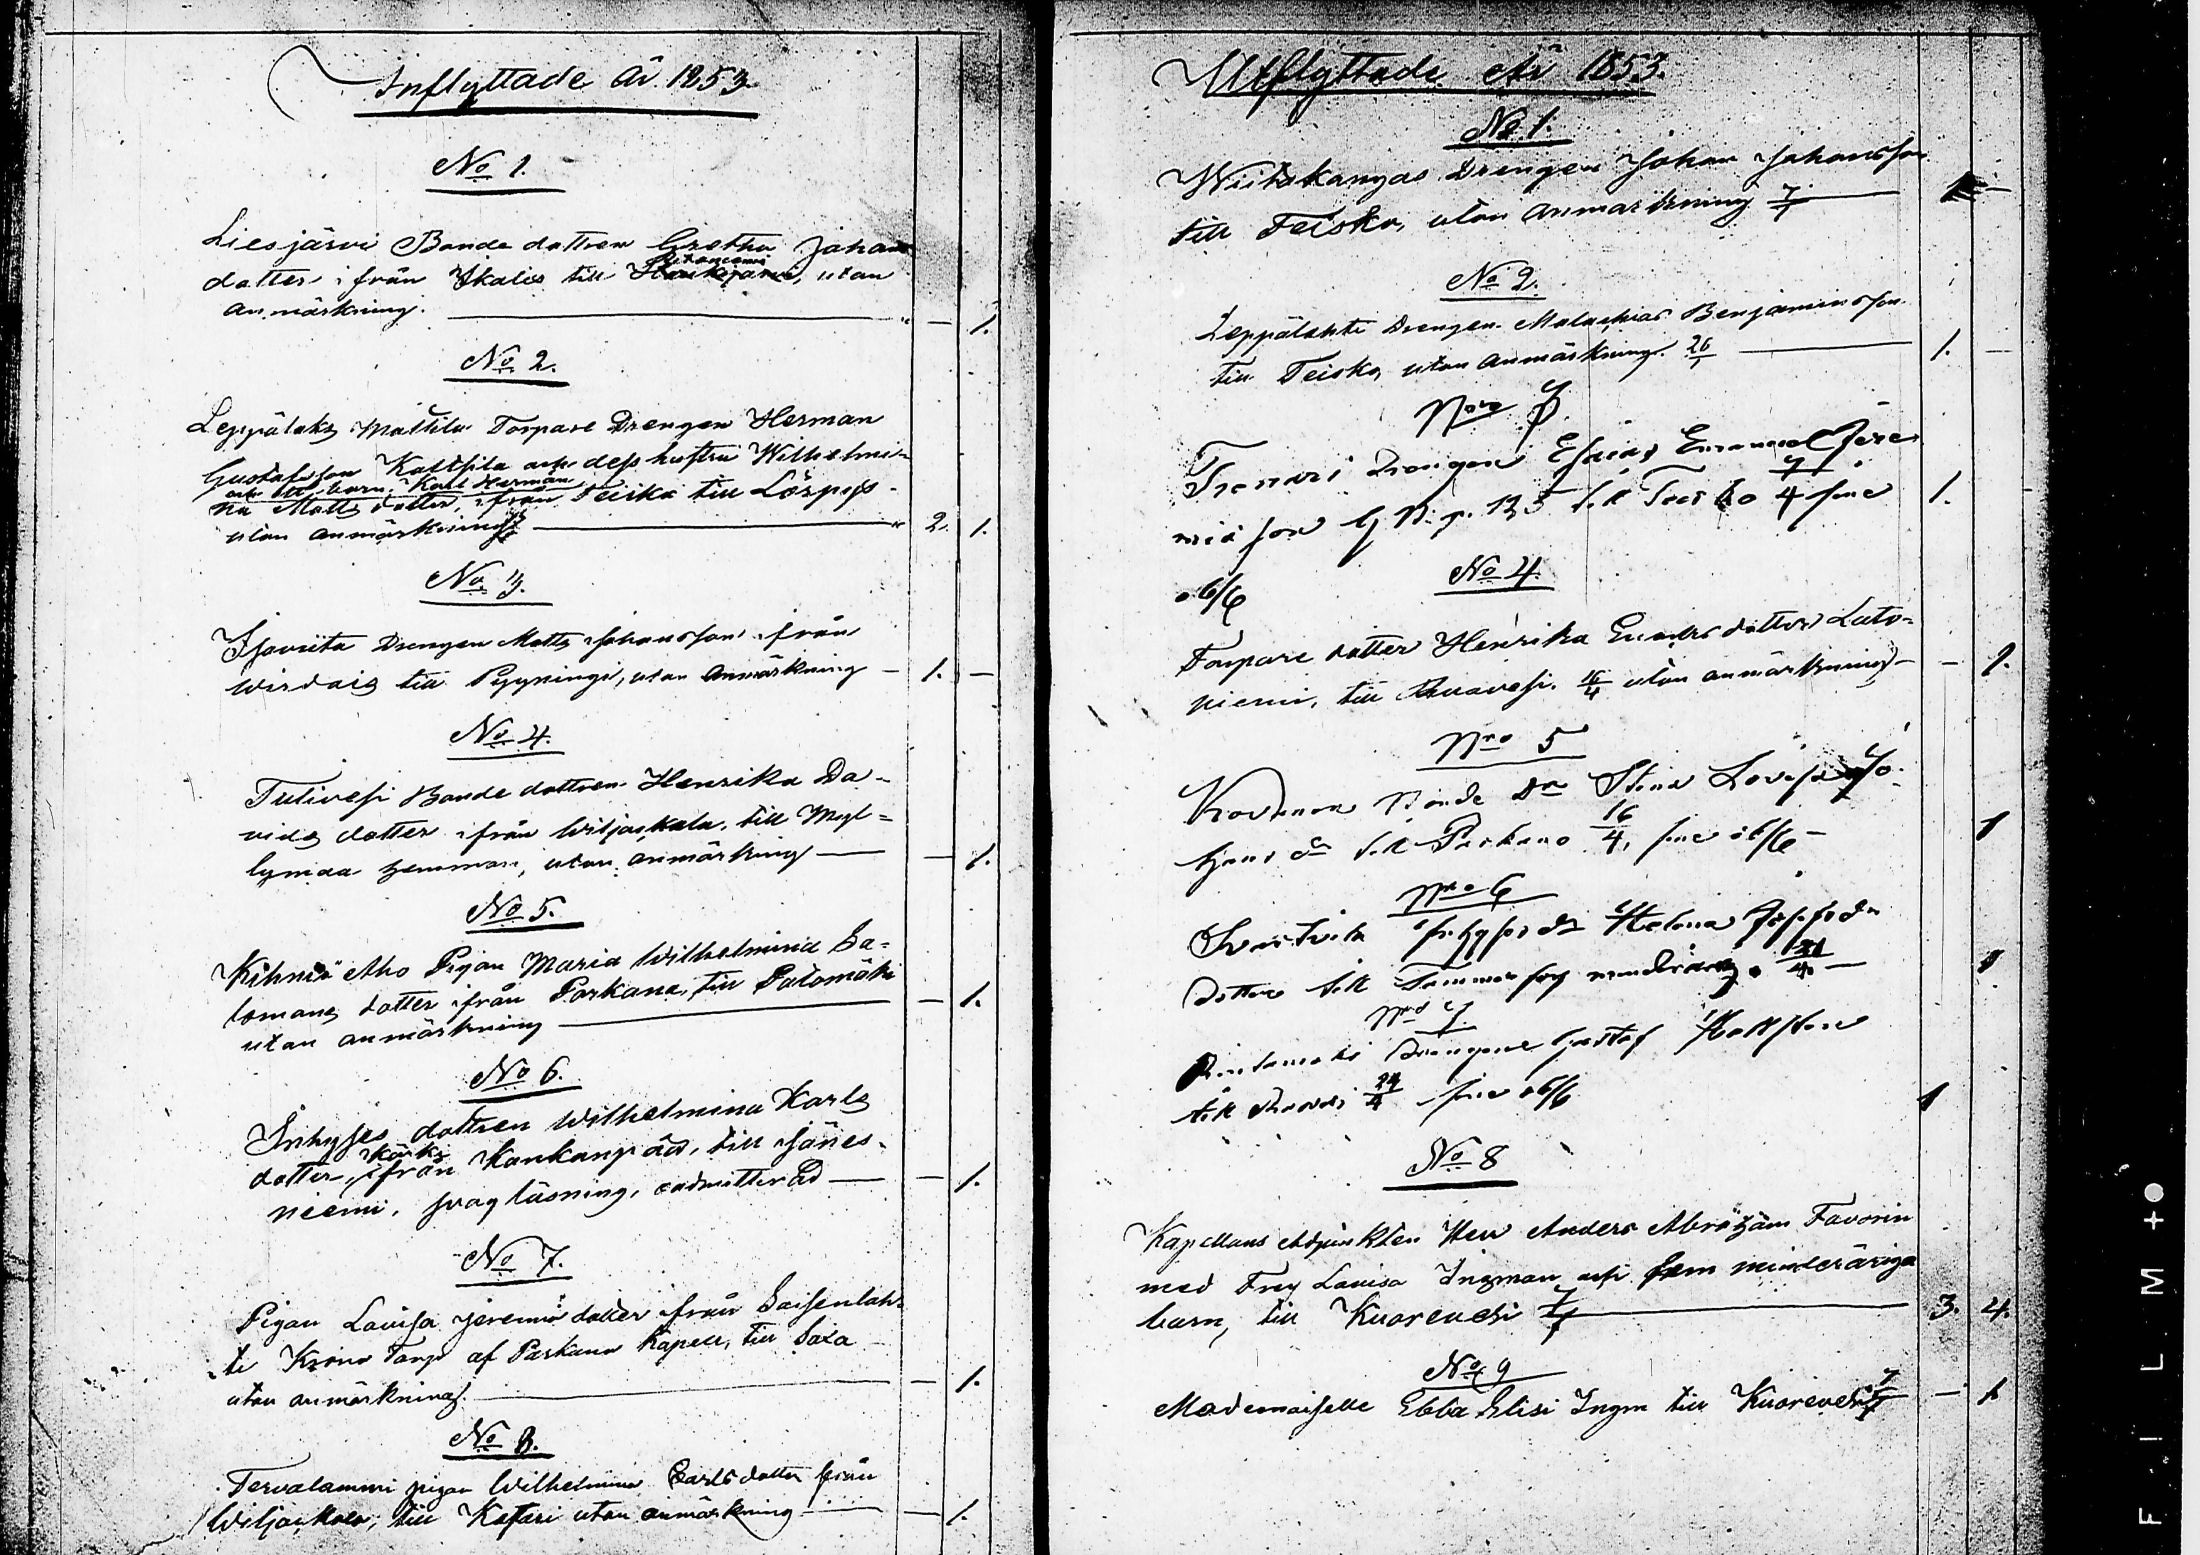 Inflyttade År 1853.
No 1.
Liesjärvi Bonde dottren Gretha Johans
dotter ifrån Ikalis till utan
anmärkning. 1.
No 2.
Leppälaks Mattila Torpare Drengen Herman
Gustafsson Kattsila och dess hustru Wilhelmi-
och ett barn, Karl Herman
na Matts dotter, ifrån Teisko till
utan anmärkning 2. 1.
No 3.
Drengen Matts Johansson ifrån
Wirdois till Pyyningi, utan anmärkning 1.
No 4.
Tulivesi Bonde dottren Henrika Da-
vids dotter ifrån Wiljackala, till Myl-
lymaa hemman, utan anmärkning 1.
No 5.
Kihniö Aho Pigan Maria Wilhelmina Sa-
lomons dotter ifrån Parkano, till Palomäki
utan anmärkning 1.
No 6.
Inhyses dottren Wilhelmina Karls
dotter, ifrån Kankanpää, till Jänes-
niemi, svag läsning, admitterad 1.
No 7.
Pigan Lovisa Jeremiä dotter från Saisenlah-
ti Krono Torp af Parkano Kapell, till Saxa
utan anmärkning. 1.
No 8.
Tervalammi pigan Wilhelmina Carls dotter från
Wiljackala, till Kafari utan anmärkning 1.
Utflyttade År 1853.
No 1.
Wiitakangas Drengen Johan Johansson
till Teisko, utan anmärkning 7/1
No 2.
Leppälahti Drengen Malachias Benjaminsson
till Teisko, utan anmärkning. 26/1 1.
Nro 3
Drengen Esaias Emanuel Jere-
mia son p. 125 till Teisko 7/4 sine 1.
No 4.
Torpare dotter Henrika Enochs dotter Lato-
niemi, till Ruovesi. 16/4 utan anmärkning 1.
Nro 5
Bonde Dr Stina Lovisa Jo-
till Parkano 16/4, sine 1
Nro 6
Helena Josefs dr
till 21/4 1
Nro 7.
Rintamäki Drengen Gustaf
till 24/4 sine 1
No 8
Kapellans Adjunkten Herr Anders Abraham Favorin
med Fru Lovisa Ingman och fem minderåriga
barn, till Kuorevesi 7/4 3. 4.
No 9
Mademoiselle Ebba Elisi Ingm till Kuorevesi 7/4 1
FILM